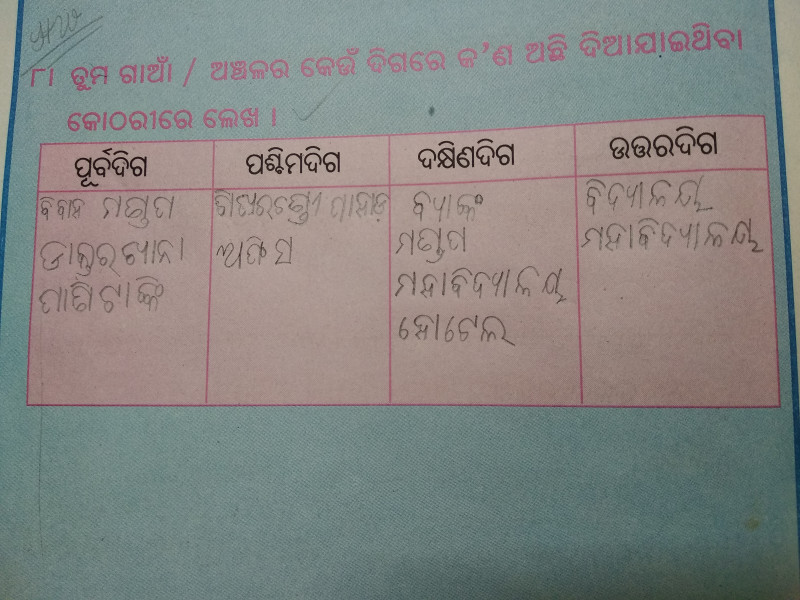 HW
୮। ତୁମ ଗାଆଁ / ଅଞ୍ଚଳର କେଉଁ ଦିଗରେ କ'ଣ ଅଛି ଦିଆଯାଇଥିବା
କୋଠରୀରେ ଲେଖ ।
ପୂର୍ବଦିଗ ପଶ୍ଚିମଦିଗ ଦକ୍ଷିଣଦିଗ ଉତ୍ତରଦିଗ
ବିବାହ ମଣ୍ଡପ ଶିଖରଚଣ୍ଡୀ ପାହାଡ଼ ବ୍ୟାଙ୍କ ବିଦ୍ୟାଳୟ
ଡାକ୍ତରଖାନା ଅଫିସ ମଣ୍ଡପ ମହାବିଦ୍ୟାଳୟ
ପାଣିଟାଙ୍କି ମହାବିଦ୍ୟାଳୟ
ହୋଟେଲ